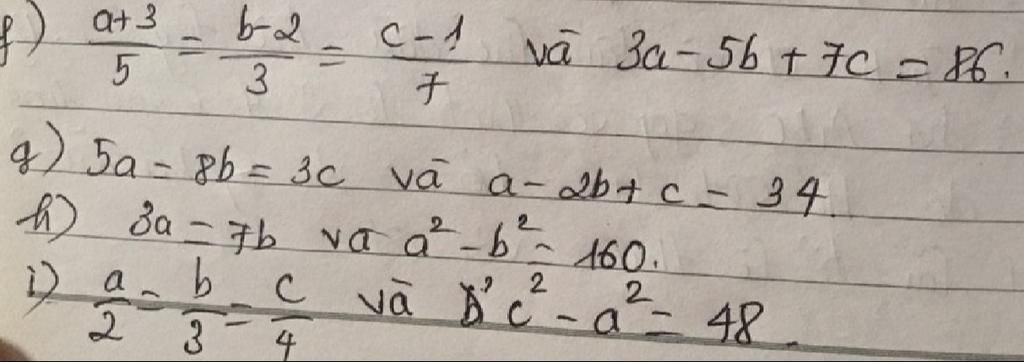 f) \frac{a+3}{5} = \frac{b-2}{3} = \frac{c-1}{7} và 3a - 5b + 7c = 86.
g) 5a = 8b = 3c và a - 2b + c = 34
h) 3a = 7b và a² - b² = 160.
i) \frac{a}{2} = \frac{b}{3} = \frac{c}{4} và c² - a² = 48.